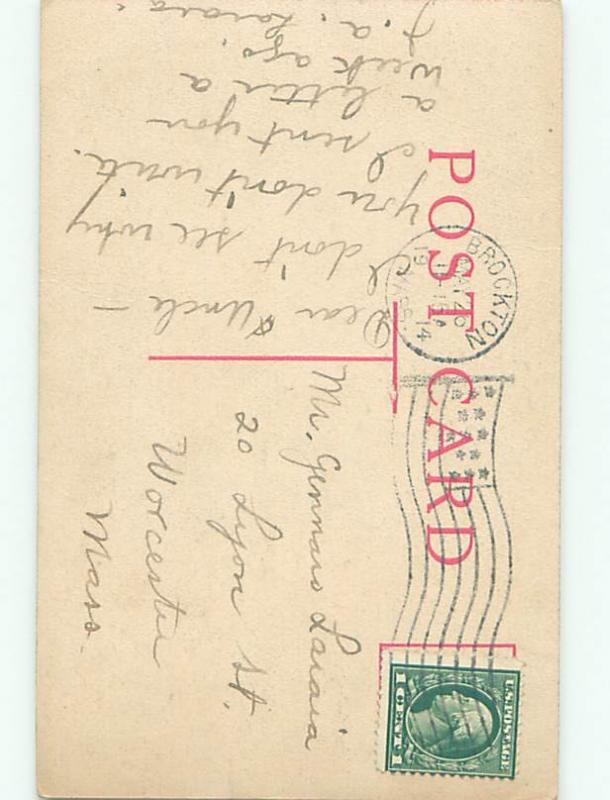 POST CARD
BROCKTON
MASS.
MAY 26
1914
U.S. POSTAGE
1 CENT 1
Dear Uncle —
I don't see why
you don't write.
I sent you
a letter a
week ago.
J. a. Laraia
Mr. Gennaro Laraia
20 Lyon St.
Worcester
Mass.